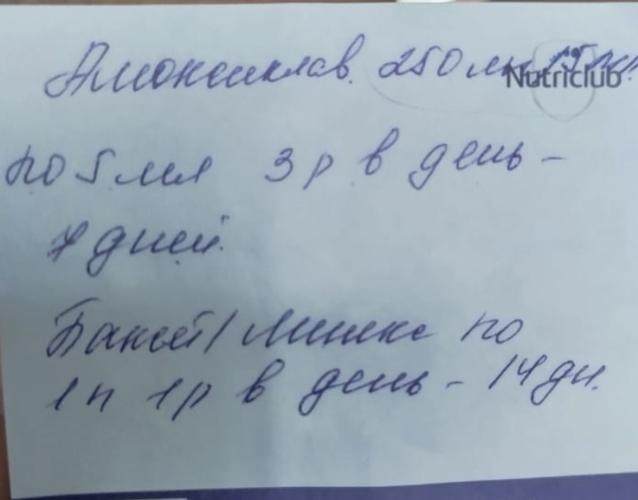 Амоксиклав. 250 мг
Nutriclub
по 5 мл 3 р в день –
7 дней.
по
1 п 1 р в день – 14 дн.